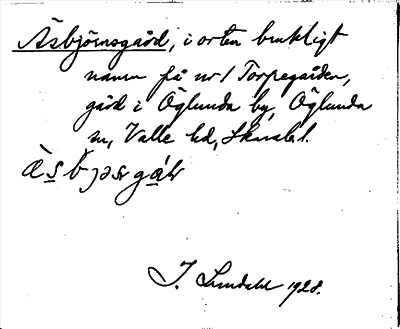 Äsbjörnsgård, i orten brukligt
namn på nr 1 Torpegården,
gård i Öglunda by, Öglunda
sn, Valle hd, Skarabl.
J. Lundahl 1928.